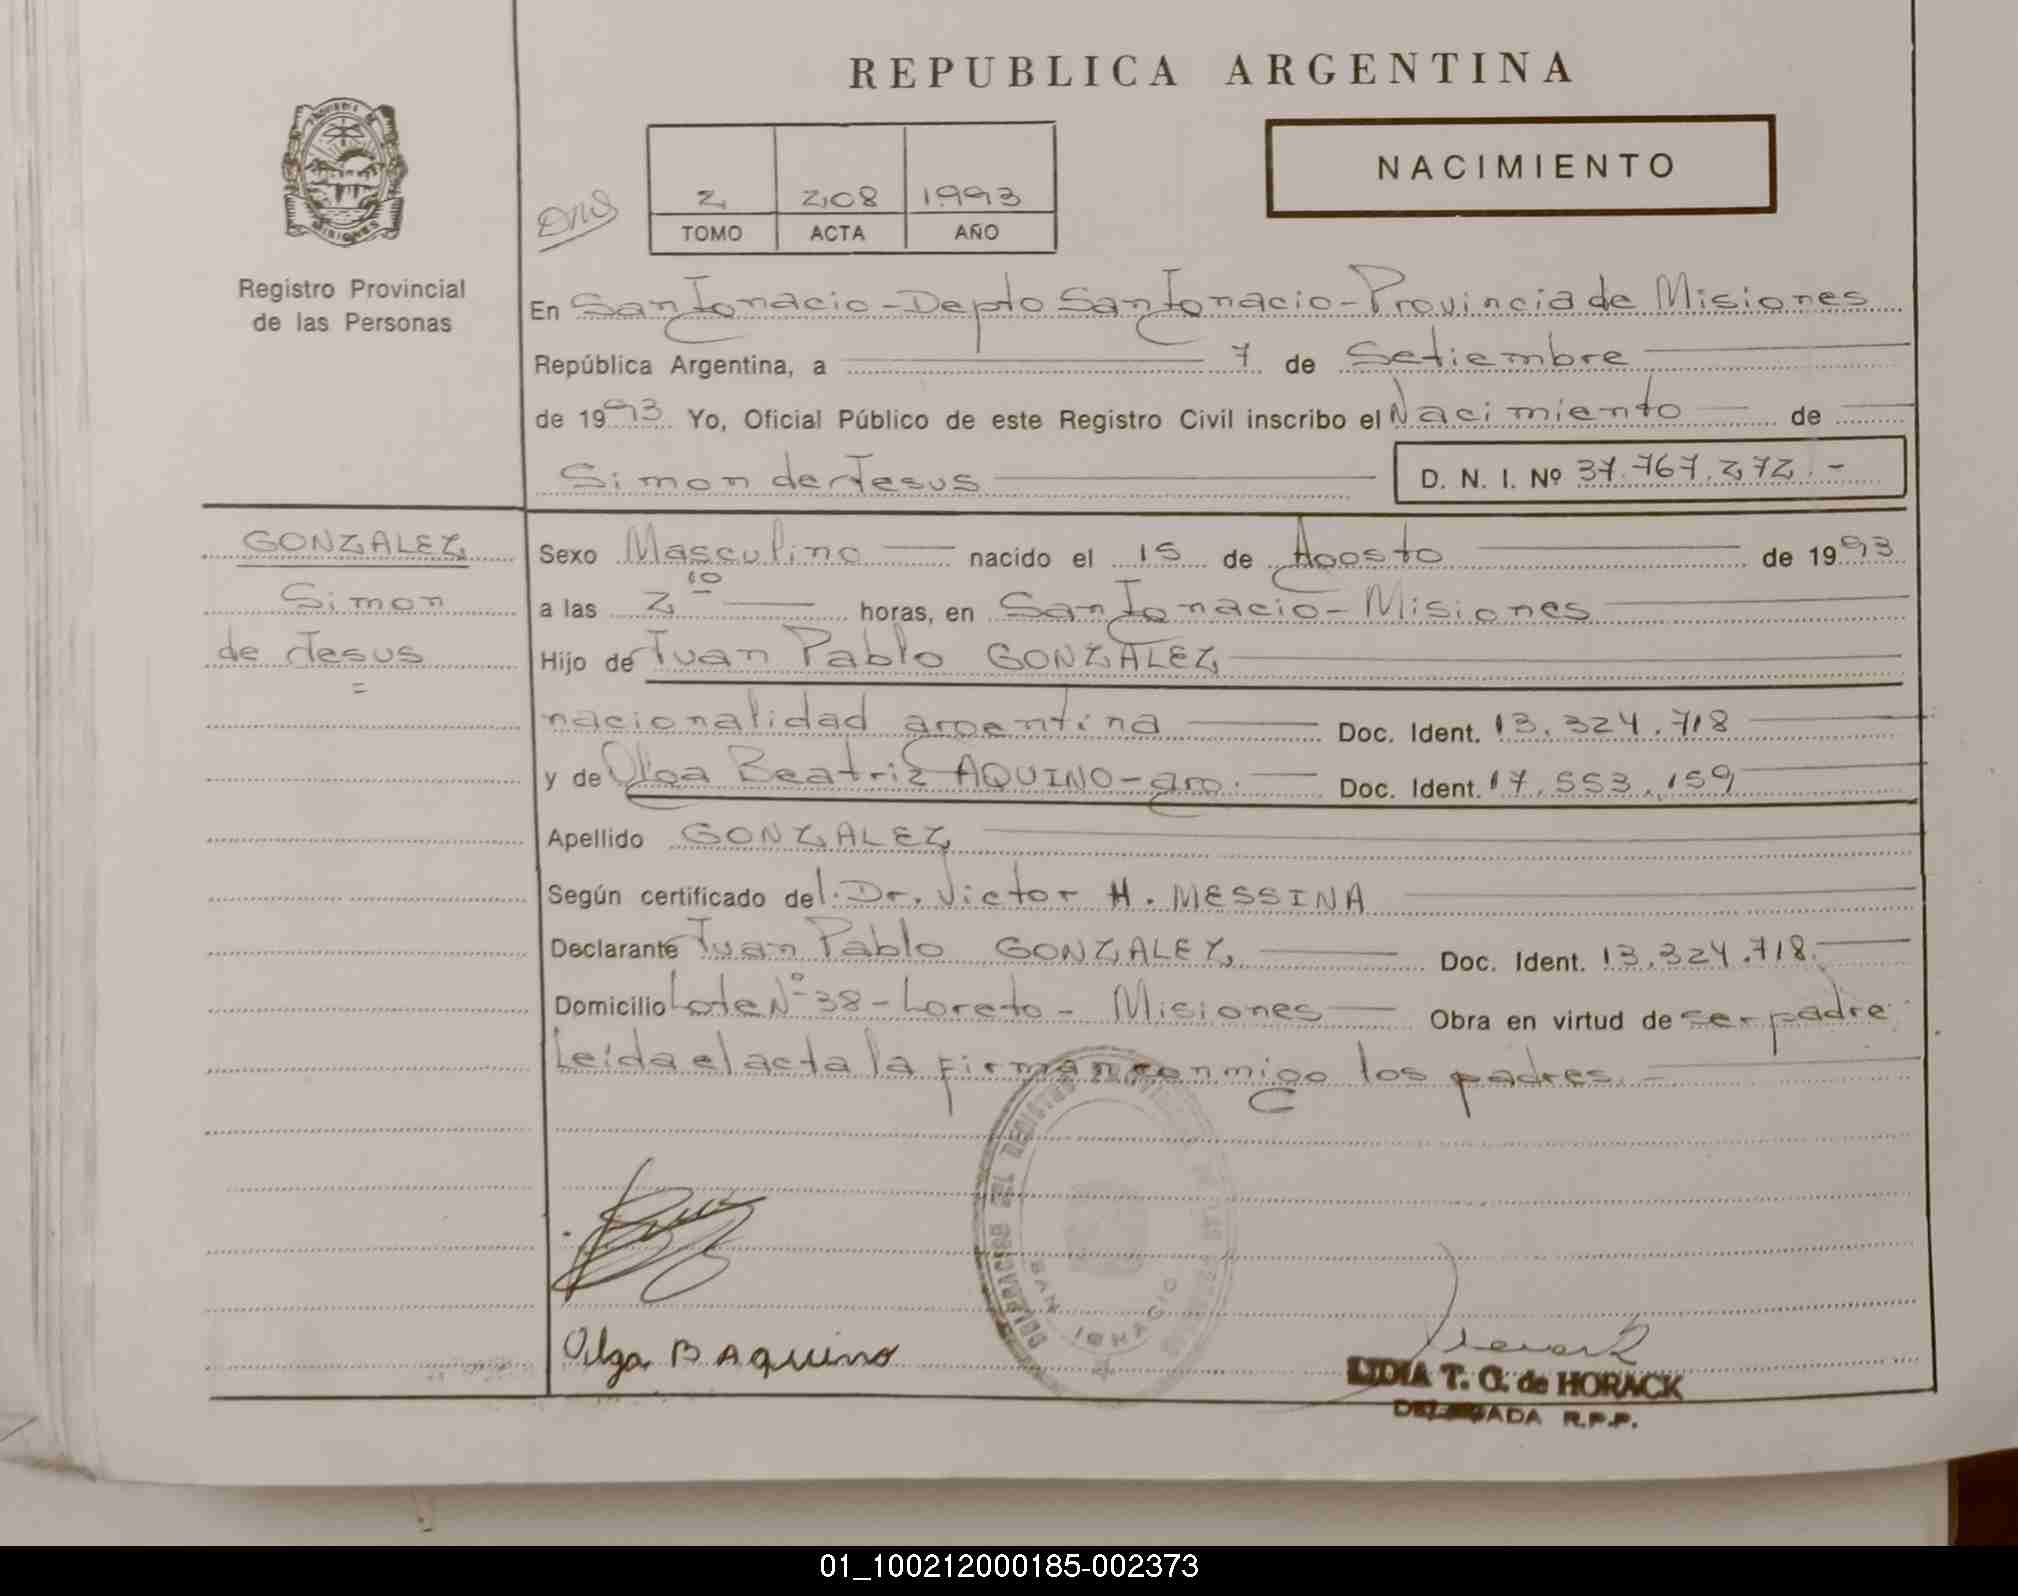 REPUBLICA ARGENTINA
NACIMIENTO
2 208 1993
TOMO ACTA AÑO
Registro Provincial
de las Personas
En San Ignacio - Depto San Ignacio - Provincia de Misiones
República Argentina, a 7 de Setiembre
de 1993 Yo, Oficial Público de este Registro Civil inscribo el Nacimiento de
Simon de Jesus D. N. I. Nº 37.767.272.-
GONZALEZ
Simon
de Jesus
=
Sexo Masculino nacido el 15 de Agosto de 1993
a las 2 10 horas, en San Ignacio - Misiones
Hijo de Juan Pablo GONZALEZ
nacionalidad argentina Doc. Ident. 13.324.718
y de Olga Beatriz AQUINO - arg. Doc. Ident. 17.553.159
Apellido GONZALEZ
Según certificado del Dr. Victor H. MESSINA
Declarante Juan Pablo GONZALEZ Doc. Ident. 13.324.718.
Domicilio Lote Nº 38 - Loreto - Misiones Obra en virtud de ser padre
Leida el acta la firman conmigo los padres. -
SAN IGNACIO
Olga B Aquino
LIDIA T. G. de HORACK
DELEGADA R.P.P.
01_100212000185-002373